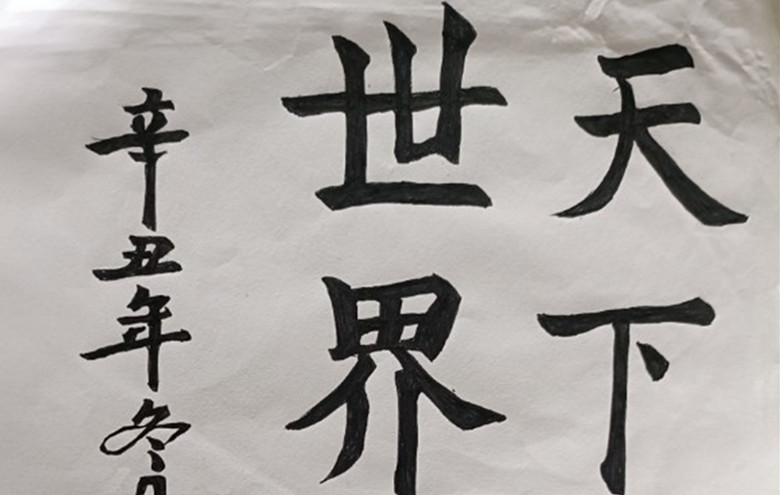 天下
世界
辛丑年冬